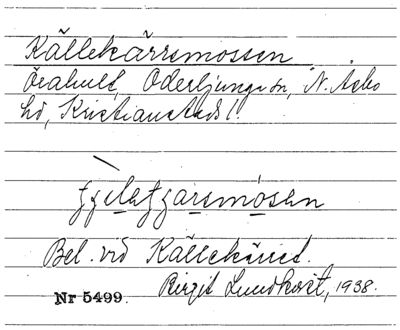 Källekärrsmossen
Örahult, Oderljunga sn, N. Åsbo
hd, Kristianstads l.
Bel. vid Källekärret.
Nr 5499 Birgit Lundkvist, 1938.